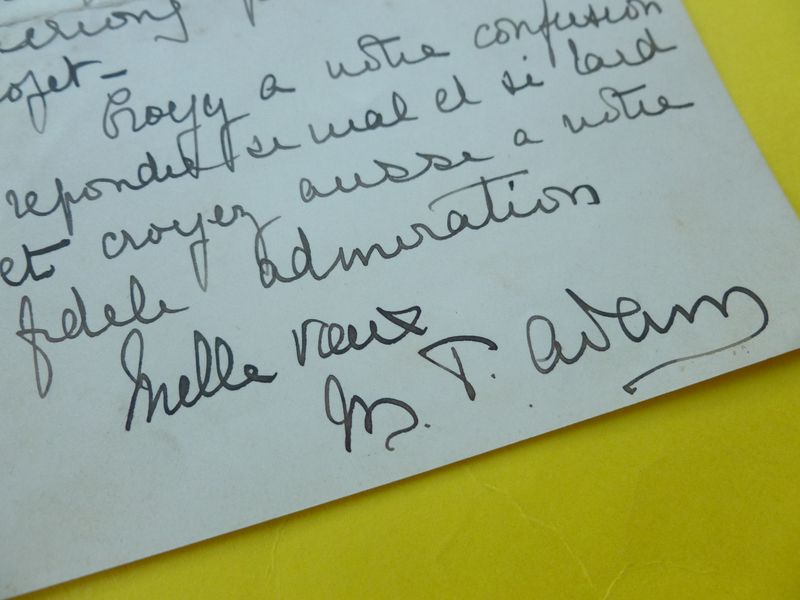 ojet -
Croyez a notre confusion
repondes si mal et si tard
et croyez aussi a notre
fidele admiration
Melle vœux
M. T. Adam